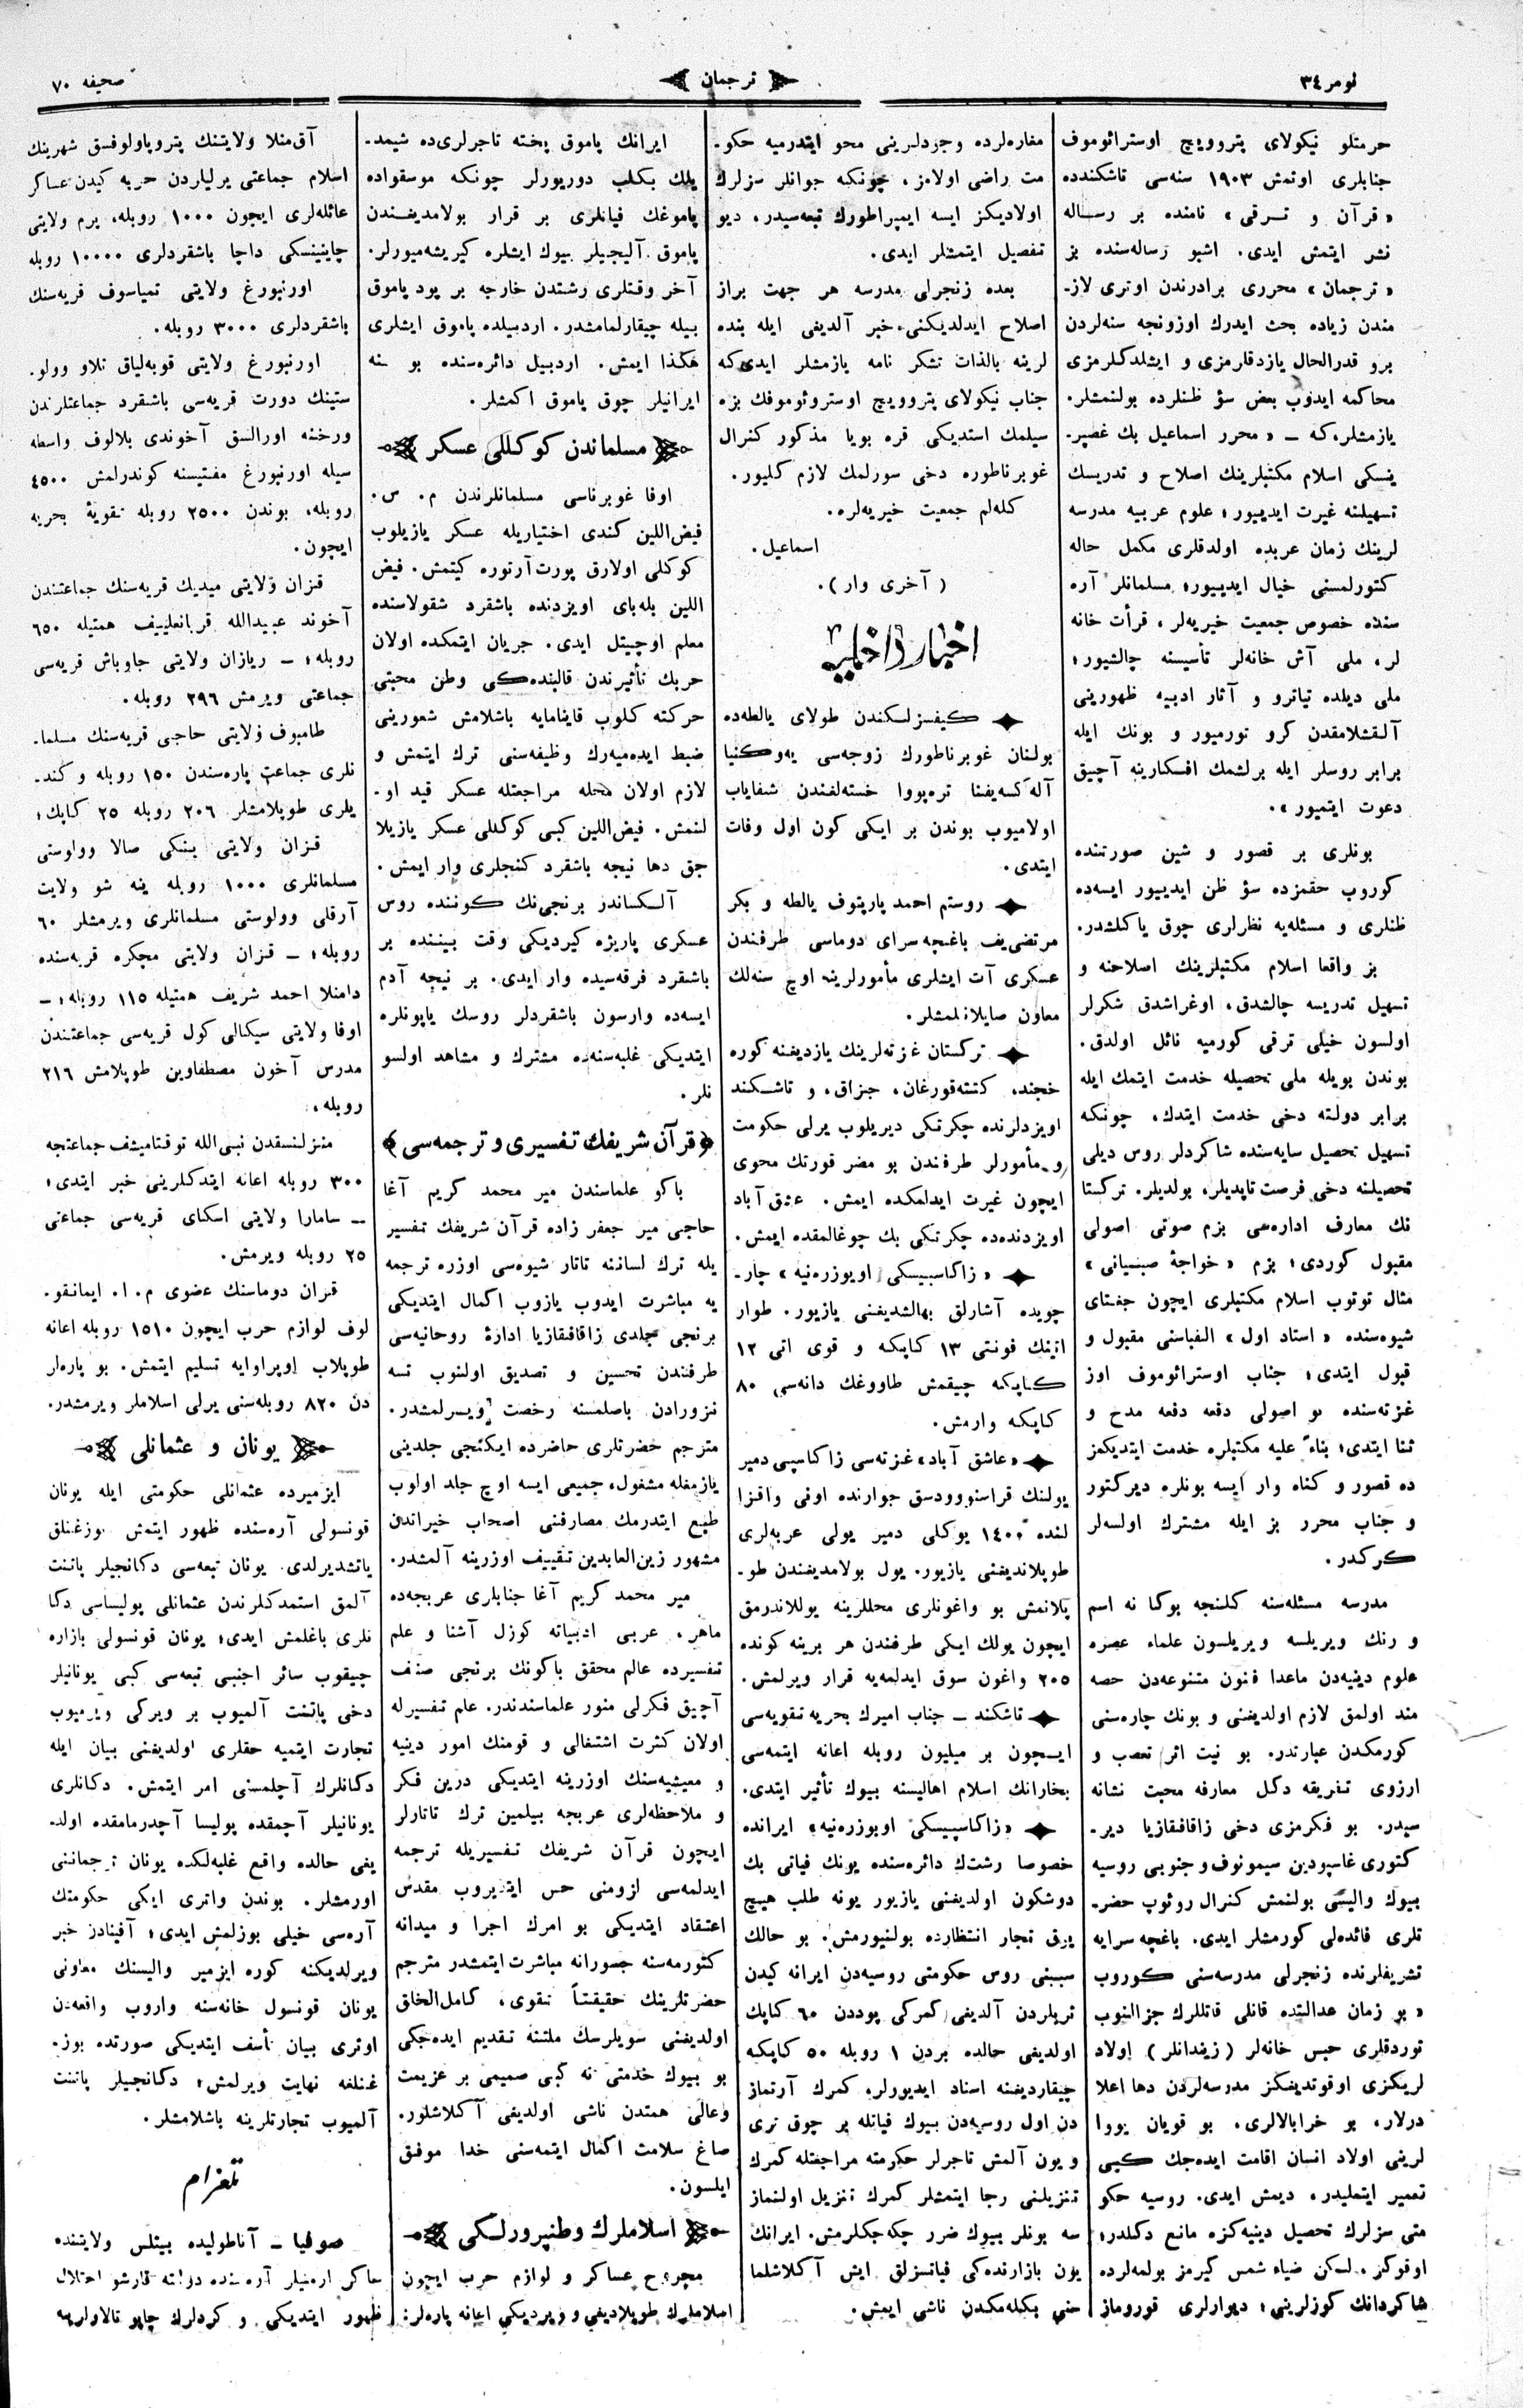 نومر ٣٤
ترجمان
صحيفه ٧٠
حرمتلو نيكولاى پترو‌ويچ اوستراثوموف
جنابلرى اوتمش ١٩٠٣ سنه‌سى تاشكندده
« قرآن و ترقى » نامنده بر رساله
نشر ايتمش ايدى. اشبو رساله‌سنده بز
« ترجمان » محررى برادرندن اوترى لاز-
مندن زياده بحث ايدرك اوزونجه سنه‌لردن
برو قدرالحال يازدقلرمزى و ايشلدكلرمزى
محاكمه ايدوب بعض سؤ ظنلرده بولنمشلر.
يازمشلر، كه – « محرر اسماعيل بك غصپر-
ينسكى اسلام مكتبلرينك اصلاح و تدريسك
تسهيلنه غيرت ايدييور؛ علوم عربيه مدرسه
لرينك زمان عربده اولدقلرى مكمل حاله
كتورلمسنى خيال ايدييور؛ مسلمانلر آره
سنده خصوص جمعيت خيريه‌لر، قرأت خانه
لر، ملى آش خانه‌لر تأسيسنه چالشيور؛
ملى ديلده تياترو و آثار ادبيه ظهورينى
آلقشلامقدن گرو تورميور و بونك ايله
برابر روسلر ايله برلشمك افكارينه آچيق
دعوت ايتميور ».
بونلرى بر قصور و شين صورتنده
كوروب حقمزده سؤ ظن ايدييور ايسه‌ده
ظنلرى و مسئله‌يه نظرلرى چوق ياكلشدر.
بز واقعا اسلام مكتبلرينك اصلاحنه و
تسهيل تدريسه چالشدق، اوغراشدق شكرلر
اولسون خيلى ترقى كورميه نائل اولدق.
بوندن بويله ملى تحصيله خدمت ايتمك ايله
برابر دولته دخى خدمت ايتدك، چونكه
تسهيل تحصيل سايه‌سنده شاكردلر روس ديلى
تحصيلنه دخى فرصت تاپديلر، بولديلر. تركستا
نك معارف اداره‌سى بزم صوتى اصولى
مقبول كوردى؛ بزم « خواجهٔ صبيانى »
مثال توتوب اسلام مكتبلرى ايچون جغتاى
شيوه‌سنده « استاد اول » الفباسنى مقبول و
قبول ايتدى؛ جناب اوستراثوموف اوز
غزته‌سنده بو اصولى دفعه دفعه مدح و
ثنا ايتدى؛ بناءً عليه مكتبلره خدمت ايتديكمز
ده قصور و گناه وار ايسه بونلره ديركتور
و جناب محرر بز ايله مشترك اولسه‌لر
گركدر.
مدرسه مسئله‌سنه كلنجه بوكا نه اسم
و رنك ويريلسه ويريلسون علماء عصره
علوم دينيه‌دن ماعدا فنون متنوعه‌دن حصه
مند اولمق لازم اولديغنى و بونك چاره‌سنى
كورمكدن عبارتدر. بو نيت اثر تعصب و
ارزوى تفريقه دكل معارفه محبت نشانه
سيدر. بو فكرمزى دخى زاقافقازيا دير-
كتورى غاسپودين سيمونوف و جنوبى روسيه
بيوك واليسى بولنمش كنرال روثوپ حضر-
تلرى فائده‌لى كورمشلر ايدى. باغچه سرايه
تشريفلرنده زنجرلى مدرسه‌سنى كوروب
« بو زمان عدالتده قانلى قاتللرك جزالنوب
توردقلرى حبس خانه‌لر ( زيندانلر ) اولاد
لريكزى اوقوتديغكز مدرسه‌لردن دها اعلا
درلار، بو خرابالارى، بو قويان يووا
لرينى اولاد انسان اقامت ايده‌جك كيبى
تعمير ايتمليدر، ديمش ايدى. روسيه حكو
متى سزلرك تحصيل دينيه‌كزه مانع دكلدر؛
اوقوكز، لكن ضياء شمس كيرمز بولمه‌لرده
شاكردانك كوزلرينى؛ ديوارلرى قوروماز
مغاره‌لرده وجودلرينى محو ايتدرميه حكو-
مت راضى اولامز، چونكه جوانلر سزلرك
اولاديكز ايسه ايمپراطورك تبعه‌سيدر، ديو
تفصيل ايتمشلر ايدى.
بعده زنجرلى مدرسه هر جهت براز
اصلاح ايدلديكنى خبر آلديغى ايله بنده
لرينه بالذات تشكر نامه يازمشلر ايدى كه
جناب نيكولاى پترو‌ويچ اوستروثوموفك بزه
سيلمك استديكى قره بويا مذكور كنرال
غوبرناطوره دخى سورلمك لازم كليور.
كله‌لم جمعيت خيريه‌لره.
اسماعيل.
( آخرى وار ).
اخبار داخليه
كيفسزلكندن طولاى يالطه‌ده
بولنان غوبرناطورك زوجه‌سى يه‌وگنيا
آله‌كسه‌يفنا تره‌پووا خسته‌لغندن شفاياب
اولاميوب بوندن بر ايكى كون اول وفات
ايتدى.
روستم احمد پارپتوف يالطه و بكر
مرتضى‌يف باغچه‌سراى دوماسى طرفندن
عسكرى آت ايشلرى مأمورلرينه اوچ سنه‌لك
معاون صايلانلمشلر.
تركستان غزته‌لرينك يازديغنه كوره
خجند، كتته‌قورغان، جزاق، و تاشكند
اويزدلرنده چكرتكى ديريلوب يرلى حكومت
و مأمورلر طرفندن بو مضر قورتك محوى
ايچون غيرت ايدلمكده ايمش. عشق آباد
اويزدنده‌ده چكرتكى بك چوغالمقده ايمش.
« زاكاسپيسكى اوبوزره‌نيه » چار-
جويده آشارلق بهالشديغنى يازيور. طوار
اتينك فونتى ١٣ كاپكه و قوى اتى ١٢
كاپكه چيقمش طاووغك دانه‌سى ٨٠
كاپكه وارمش.
« عاشق آباد » غزته‌سى زاكاسپى دمير
يولنك قراسنوودسق جوارنده اوفى وافزا
لنده ١٤٠٠ يوكلى دمير يولى عربه‌لرى
طوپلانديغنى يازيور. يول بولامديغندن طو-
پلانمش بو واغونلرى محللرينه يوللاندرمق
ايچون يولك ايكى طرفندن هر برينه كونده
٢٠٥ واغون سوق ايدلمه‌يه قرار ويرلمش.
تاشكند – جناب اميرك بحريه تقويه‌سى
ايچون بر ميليون روبله اعانه ايتمه‌سى
بخارانك اسلام اهاليسنه بيوك تأثير ايتدى.
« زاكاسپيسكى اوبوزره‌نيه » ايرانده
خصوصا رشتك دائره‌سنده يونك فياتى بك
دوشكون اولديغنى يازيور يونه طلب هيچ
يوق تجار انتظارده بولنيورمش. بو حالك
سببنى روس حكومتى روسيه‌دن ايرانه كيدن
تريلردن آلديغى گمركى پوددن ٦٠ كاپك
اولديغى حالده بردن ١ روبله ٥٠ كاپكه
چيقارديغنه اسناد ايديورلر. كمرك آرتماز
دن اول روسيه‌دن بيوك فياتله پر چوق ترى
و يون آلمش تاجرلر حكومته مراجعتله كمرك
تنزيلنى رجا ايتمشلر كمرك تنزيل اولنماز
سه بونلر بيوك ضرر چكه‌جكلرمش. ايرانك
يون بازارنده‌كى فياتسزلق ايش آكلاشلما
حنى بكله‌مكدن ناشى ايمش.
ايرانك پاموق پخته تاجرلرى‌ده شيمد-
يلك بكلب دوريورلر چونكه موسقواده
پاموغك فياتلرى بر قرار بولامديغندن
پاموق آليجيلر بيوك ايشلره كيريشه‌ميورلر.
آخر وقتلرى رشتدن خارجه بر پود پاموق
بيله چيقارلمامشدر. اردبيلده پاموق ايشلرى
هكذا ايمش. اردبيل دائره‌سنده بو سنه
ايرانيلر چوق پاموق اكمشلر.
مسلماندن كوكللى عسكر
اوفا غوبرناسى مسلمانلرندن م. س.
فيض‌اللين كندى اختياريله عسكر يازيلوب
كوكللى اولارق پورت آرتوره كيتمش. فيض
اللين بله‌باى اويزدنده باشقرد شقولاسنده
معلم اوچيتل ايدى. جريان ايتمكده اولان
حربك تأثيرندن قالبنده‌كى وطن محبتى
حركته كلوب قاينامايه باشلامش شعورينى
ضبط ايده‌ميه‌رك وظيفه‌سنى ترك ايتمش و
لازم اولان محله مراجعتله عسكر قيد او-
لنمش. فيض‌اللين كبى كوكللى عسكر يازيلا
جق دها نيچه باشقرد كنجلرى وار ايمش.
آلكساندر برنجى‌نك كوننده روس
عسكرى پاريژه كيرديكى وقت بيننده بر
باشقرد فرقه‌سيده وار ايدى. بر نيچه آدم
ايسه‌ده وارسون باشقردلر روسك ياپونلره
ايتديكى غلبه‌سنه‌ده مشترك و مشاهد اولسو
نلر.
﴿ قرآن شريفك تفسيرى و ترجمه‌سى ﴾
باكو علماسندن مير محمد كريم آغا
حاجى مير جعفر زاده قرآن شريفك تفسير
يله ترك لساننه تاتار شيوه‌سى اوزره ترجمه
يه مباشرت ايدوب يازوب اكمال ايتديكى
برنجى جلدى زاقافقازيا ادارهٔ روحانيه‌سى
طرفندن تحسين و تصديق اولنوب تسه
نزورادن باصلمسنه رخصت ويرلمشدر.
مترجم حضرتلرى حاضرده ايكنجى جلدينى
يازمغله مشغول، جميعى ايسه اوچ جلد اولوب
طبع ايتدرمك مصارفنى اصحاب خيراندن
مشهور زين‌العابدين تقييف اوزرينه آلمشدر.
مير محمد كريم آغا جنابلرى عربجه‌ده
ماهر، عربى ادبياته كوزل آشنا و علم
تفسيرده عالم محقق باكونك برنجى صنف
آچيق فكرلى منور علماسندندر. علم تفسيرله
اولان كثرت اشتغالى و قومنك امور دينيه
و معيشيه‌سنك اوزرينه ايتديكى درين فكر
و ملاحظه‌لرى عربجه بيلمين ترك تاتارلر
ايچون قرآن شريفك تفسيريله ترجمه
ايدلمه‌سى لزومنى حس ايتديروب مقدس
اعتقاد ايتديكى بو امرك اجرا و ميدانه
كتورمه‌سنه جسورانه مباشرت ايتمشدر مترجم
حضرتلرينك حقيقتاً تقوى، كامل‌الخلق
اولديغنى سويلرسك ملتنه تقديم ايده‌جكى
بو بيوك خدمتى نه كبى صميمى بر عزيمت
وعالى همتدن ناشى اولديغى آكلاشلور.
صاغ سلامت اكمال ايتمه‌سنى خدا موفق
ايلسون.
اسلاملرك وطنپرورلكى
مجروح عساكر و لوازم حرب ايچون
اسلاملرك طوپلاديغى و ويرديكى اعانه پاره‌لر:
آق‌منلا ولايتنك پتروپاولوفسق شهرينك
اسلام جماعتى يرلياردن حربه كيدن عساكر
عائله‌لرى ايچون ١٠٠٠ روبله، پرم ولايتى
چاينينسكى داچا باشقردلرى ١٠٠٠٠ روبله
اورنبورغ ولايتى تمياسوف قريه‌سنك
باشقردلرى ٣٠٠٠ روبله.
اورنبورغ ولايتى قوبه‌لياق تلاو وولو-
ستينك دورت قريه‌سى باشقرد جماعتلرندن
ورخنه اورالسق آخوندى بلالوف واسطه
سيله اورنبورغ مفتيسنه كوندرلمش ٤٥٠٠
روبله، بوندن ٢٥٠٠ روبله تقويهٔ بحريه
ايچون.
قزان ولايتى ميديك قريه‌سنك جماعتندن
آخوند عبيدالله قربانعلييف همتيله ٦٥٠
روبله؛ – ريازان ولايتى جاوباش قريه‌سى
جماعتى ويرمش ٢٩٦ روبله.
طامبوف ولايتى حاجى قريه‌سنك مسلما-
نلرى جماعت پاره‌سندن ١٥٠ روبله و كند-
يلرى طوپلامشلر ٢٠٦ روبله ٢٥ كاپك؛
قزان ولايتى ينكى صالا وولوستى
مسلمانلرى ١٠٠٠ روبله ينه شو ولايت
آرقلى وولوستى مسلمانلرى ويرمشلر ٦٠
روبله؛ – قزان ولايتى مچكره قريه‌سنده
دامنلا احمد شريف همتيله ١١٥ روبله؛ –
اوفا ولايتى سيكالى كول قريه‌سى جماعتندن
مدرس آخون مصطفاوين طوپلامش ٢١٦
روبله،
منزلنسقدن نبى‌الله توقتاميشف جماعتجه
٣٠٠ روبله اعانه ايتدكلرينى خبر ايتدى؛
– سامارا ولايتى اسكاى قريه‌سى جماعتى
٢٥ روبله ويرمش.
قزان دوماسنك عضوى م. ا. ايمانقو-
لوف لوازم حرب ايچون ١٥١٠ روبله اعانه
طوپلاب اوپراوايه تسليم ايتمش. بو پاره‌لر
دن ٨٢٠ روبله‌سنى يرلى اسلاملر ويرمشدر.
يونان و عثمانلى
ايزميرده عثمانلى حكومتى ايله يونان
قونسولى آره‌سنده ظهور ايتمش بوزغنلق
ياتشديرلدى. يونان تبعه‌سى دكانجيلر پاتنت
آلمق استمدكلرندن عثمانلى پوليساسى دكا
نلرى باغلمش ايدى؛ يونان قونسولى بازاره
چيقوب سائر اجنبى تبعه‌سى كبى يونانيلر
دخى پاتنت آلميوب بر ويركى ويرميوب
تجارت ايتميه حقلرى اولديغنى بيان ايله
دكانلرك آچلمسنى امر ايتمش. دكانلرى
يونانيلر آچمقده پوليسا آچدرمامقده اولد-
يغى حالده واقع غلبه‌لكده يونان ترجماننى
اورمشلر. بوندن واترى ايكى حكومتك
آره‌سى خيلى بوزلمش ايدى؛ آفينادن خبر
ويرلديكنه كوره ايزمير واليسنك معاونى
يونان قونسول خانه‌سنه واروب واقعه‌دن
اوترى بيان تأسف ايتديكى صورتده بوز-
غنلغه نهايت ويرلمش؛ دكانجيلر پاتنت
آلميوب تجارتلرينه باشلامشلر.
تلغرام
صوفيا – آناطوليده بيتلس ولايتنده
ساكن ارمنيلر آره‌سنده دولته قارشو اختلال
ظهور ايتديكى و كردلرك چاپو تالاولريه